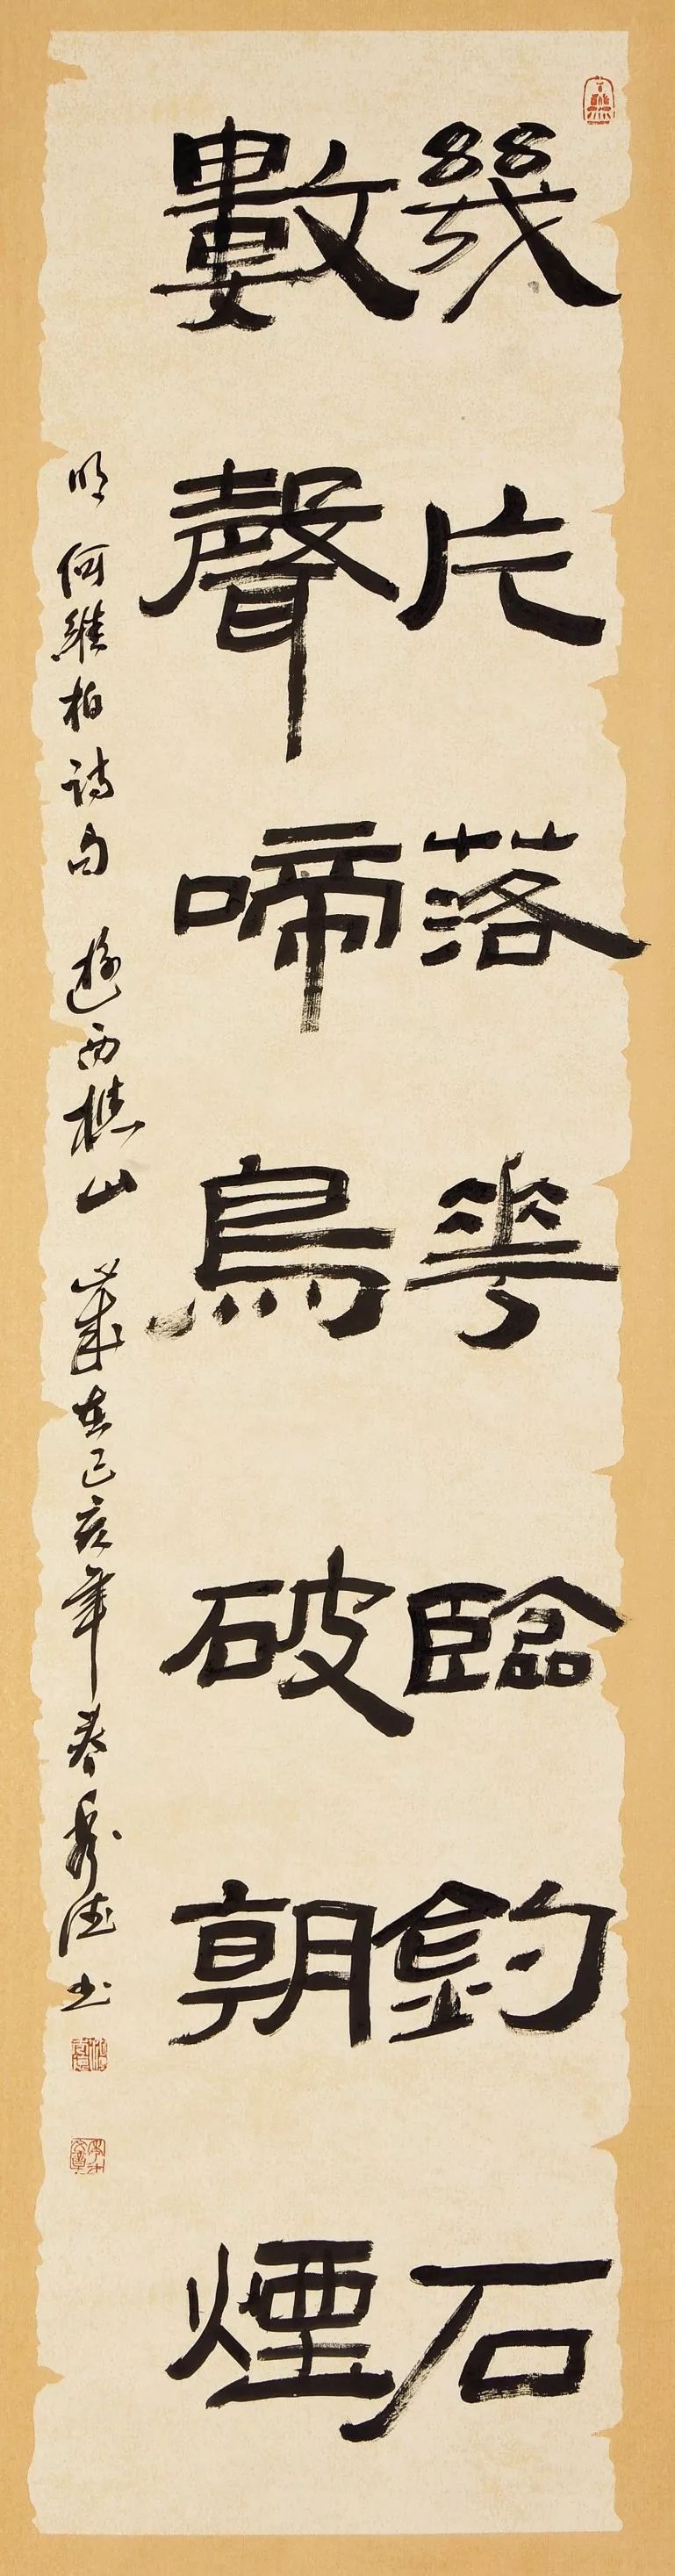 幾片落花臨釣石
數聲啼鳥破朝煙
明何維柏詩句 遊西樵山 歲在己亥年春 秀德書